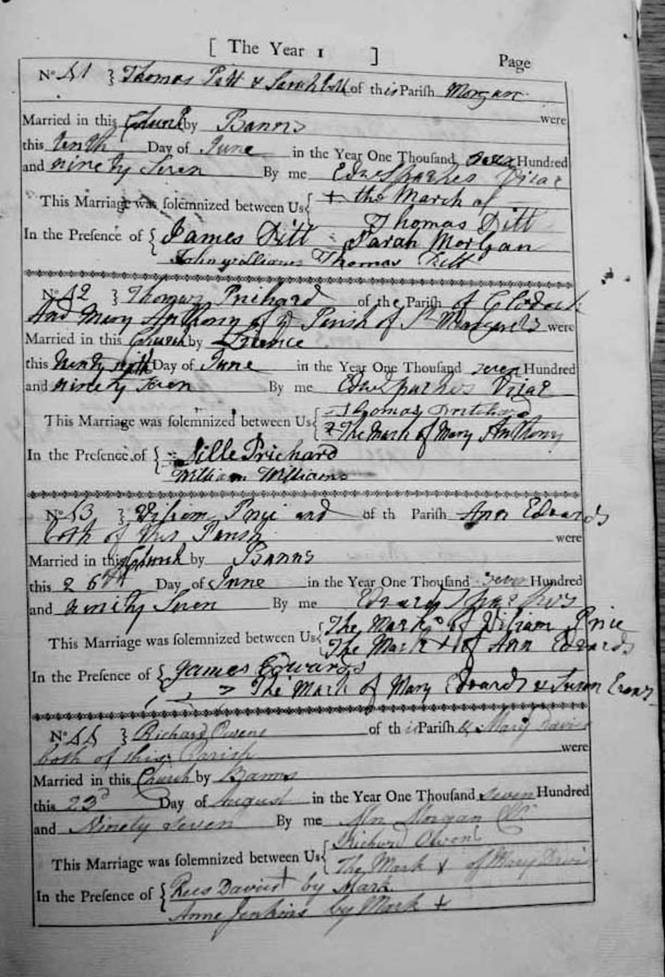 [ The Year 1 ] Page
No 41 } Thomas Pitt & Sarah of this Parish Morgan
Married in this Church by Banns were
this tenth Day of June in the Year One Thousand seven Hundred
and ninety Seven By me Edw Parkes Vicar
This Marriage was solemnized between Us { + the March of
Thomas Pitt
In the Presence of { James Pitt Sarah Morgan
John williams Thomas Pitt
No 42 } Thomas Prichard of the Parish of Clodock
and Mary Anthony of ye Parish of St Margarets were
Married in this Church by Licence
this Day of June in the Year One Thousand seven Hundred
and ninety seven By me Edw Parkes Vicar
This Marriage was solemnized between Us { Thomas Pritchard
The Mark of Mary Anthony
In the Presence of { Prichard
William Williams
No 43 } William Price and of th Parish Ann Edwards
both of this Parish were
Married in this Church by Banns
this 26th Day of June in the Year One Thousand seven Hundred
and ninety Seven By me Edward Parkes
This Marriage was solemnized between Us { The Mark of William Price
The Mark + of Ann Edwards
In the Presence of { James Edwards
The Mark of Mary Edwards & Susan Evans
No 44 } Richard Owens of this Parish & Mary Davies
both of this Parish were
Married in this Church by Banns
this 23d Day of August in the Year One Thousand seven Hundred
and Ninety seven By me Morgan
Richard Owens
This Marriage was solemnized between Us { The Mark x of Mary Davies
In the Presence of { Rees Davies + by Mark
Anne Jenkins by Mark +